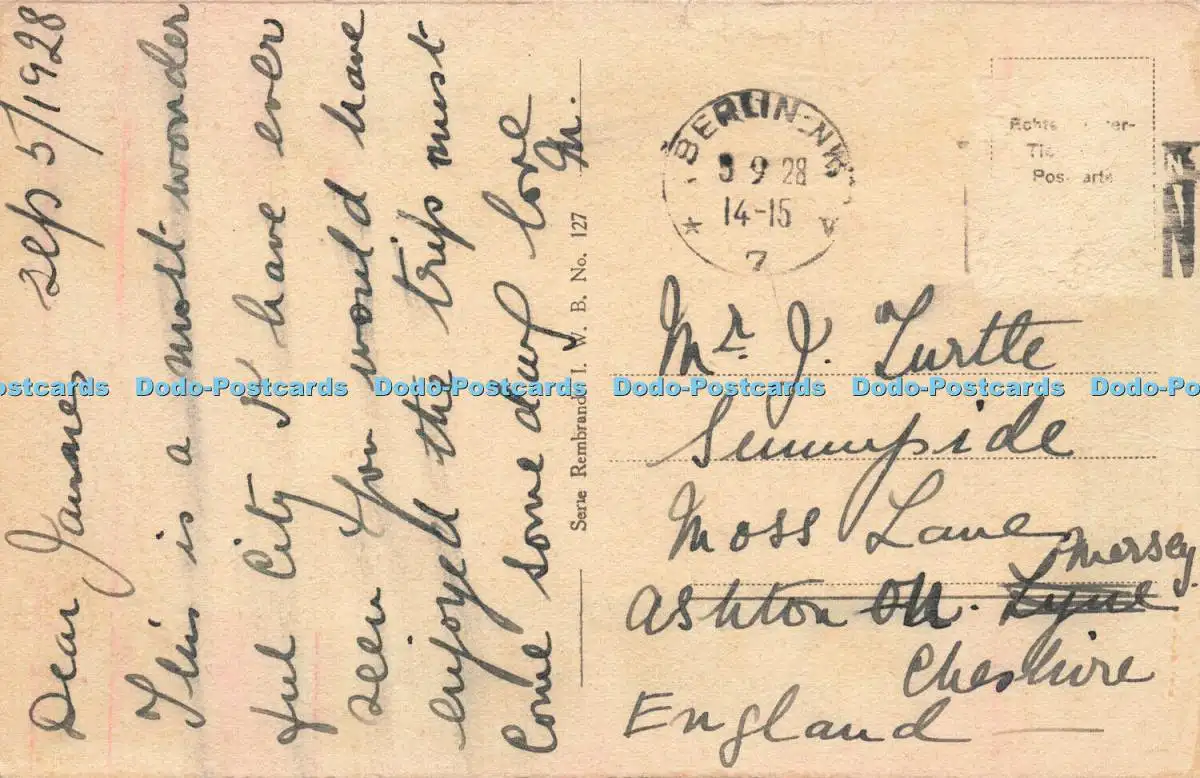 Sep 5/1928
Dear James
This is a most wonder
ful City I have ever
seen You would have
enjoyed the trip must
Come some day love
M.
Serie Rembrandt I. W. B. No. 127
BERLIN-NW
9 28
14-15
* 7 v
Echte
Postkarte
Mr. J. Turtle
Sunnyside
Moss Lane
Mersey
Ashton on. Lyne
Cheshire
England
Dodo-Postcards Dodo-Postcards Dodo-Postcards Dodo-Postcards Dodo-Postcards